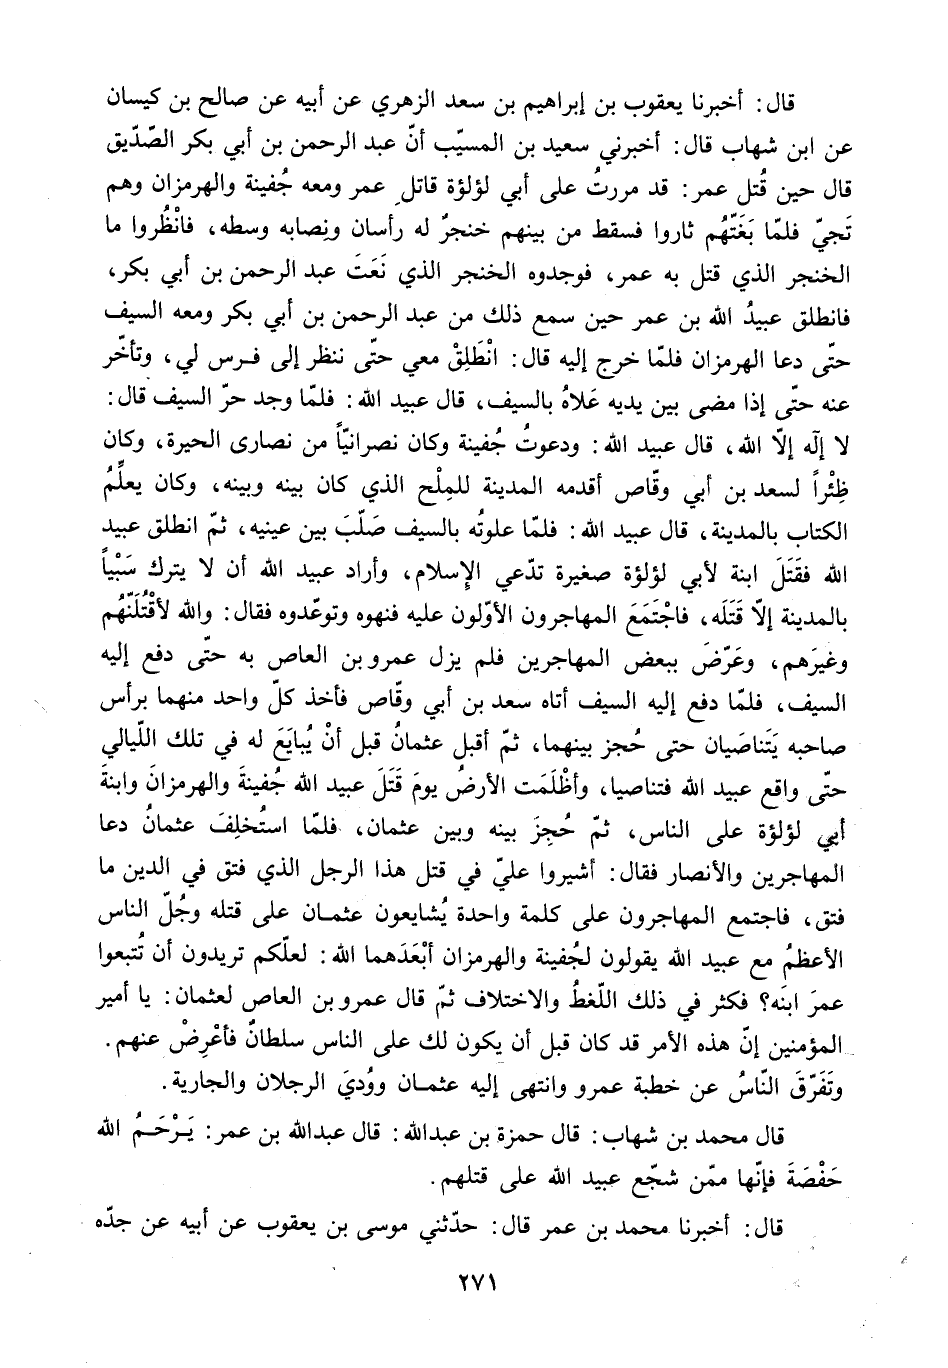 قال: أخبرنا يعقوب بن إبراهيم بن سعد الزهري عن أبيه عن صالح بن كيسان
عن ابن شهاب قال: أخبرني سعيد بن المسيّب أنّ عبد الرحمن بن أبي بكر الصّدّيق
قال حين قُتل عمر: قد مررتُ على أبي لؤلؤة قاتل عمر ومعه جُفينة والهرمزان وهم
نَجيّ فلمّا بَغَتّهُم ثاروا فسقط من بينهم خنجرٌ له رأسان ونِصابه وسطه، فانْظُروا ما
الخنجر الذي قتل به عمر، فوجدوه الخنجر الذي نَعَتَ عبد الرحمن بن أبي بكر،
فانطلق عبيدُ الله بن عمر حين سمع ذلك من عبد الرحمن بن أبي بكر ومعه السيف
حتّى دعا الهرمزان فلمّا خرج إليه قال: انْطَلِقْ معي حتّى ننظر إلى فرس لي، وتأخّر
عنه حتّى إذا مضى بين يديه عَلاهُ بالسيف، قال عبيد الله: فلمّا وجد حرّ السيف قال:
لا إلَه إلّا الله، قال عبيد الله: ودعوتُ جُفينة وكان نصرانيّاً من نصارى الحيرة، وكان
ظِئْراً لسعد بن أبي وقّاص أقدمه المدينة للمِلْح الذي كان بينه وبينه، وكان يعلِّمُ
الكتاب بالمدينة، قال عبيد الله: فلمّا علوتُه بالسيف صَلّبَ بين عينيه، ثمّ انطلق عبيد
الله فقَتَلَ ابنة لأبي لؤلؤة صغيرة تدّعي الإسلام، وأراد عبيد الله أن لا يترك سَبْياً
بالمدينة إلّا قَتَلَه، فاجْتَمَعَ المهاجرون الأوّلون عليه فنهوه وتوعّدوه فقال: والله لأقْتُلَنّهُم
وغيرَهم، وعَرّضَ ببعض المهاجرين فلم يزل عمرو بن العاص به حتّى دفع إليه
السيف، فلمّا دفع إليه السيف أتاه سعد بن أبي وقّاص فأخذ كلّ واحد منهما برأس
صاحبه يَتَناصَيان حتى حُجز بينهما، ثمّ أقبل عثمانُ قبل أنْ يُبايَعَ له في تلك اللّيالي
حتّى واقع عبيد الله فتناصيا، وأظْلَمَت الأرضُ يومَ قَتَلَ عبيد الله جُفينةَ والهرمزانَ وابنةَ
أبي لؤلؤة على الناس، ثمّ حُجِزَ بينه وبين عثمان، فلمّا استُخلِفَ عثمانُ دعا
المهاجرين والأنصار فقال: أشيروا عليّ في قتل هذا الرجل الذي فتق في الدين ما
فتق، فاجتمع المهاجرون على كلمة واحدة يُشايعون عثمان على قتله وجُلّ الناس
الأعظمُ مع عبيد الله يقولون لجُفينة والهرمزان أبْعَدَهما الله: لعلّكم تريدون أن تُتبعوا
عمرَ ابنَه؟ فكثر في ذلك اللّغطُ والاختلاف ثمّ قال عمرو بن العاص لعثمان: يا أمير
المؤمنين إنّ هذه الأمر قد كان قبل أن يكون لك على الناس سلطانٌ فأعْرِضْ عنهم.
وتَفَرّقَ النّاسُ عن خطبة عمرو وانتهى إليه عثمان ووُديَ الرجلان والجارية.
قال محمد بن شهاب: قال حمزة بن عبدالله: قال عبدالله بن عمر: يَرْحَمُ الله
حَفْصَةَ فإنّها ممّن شجّع عبيد الله على قتلهم.
قال: أخبرنا محمد بن عمر قال: حدّثني موسى بن يعقوب عن أبيه عن جدّه
٢٧١